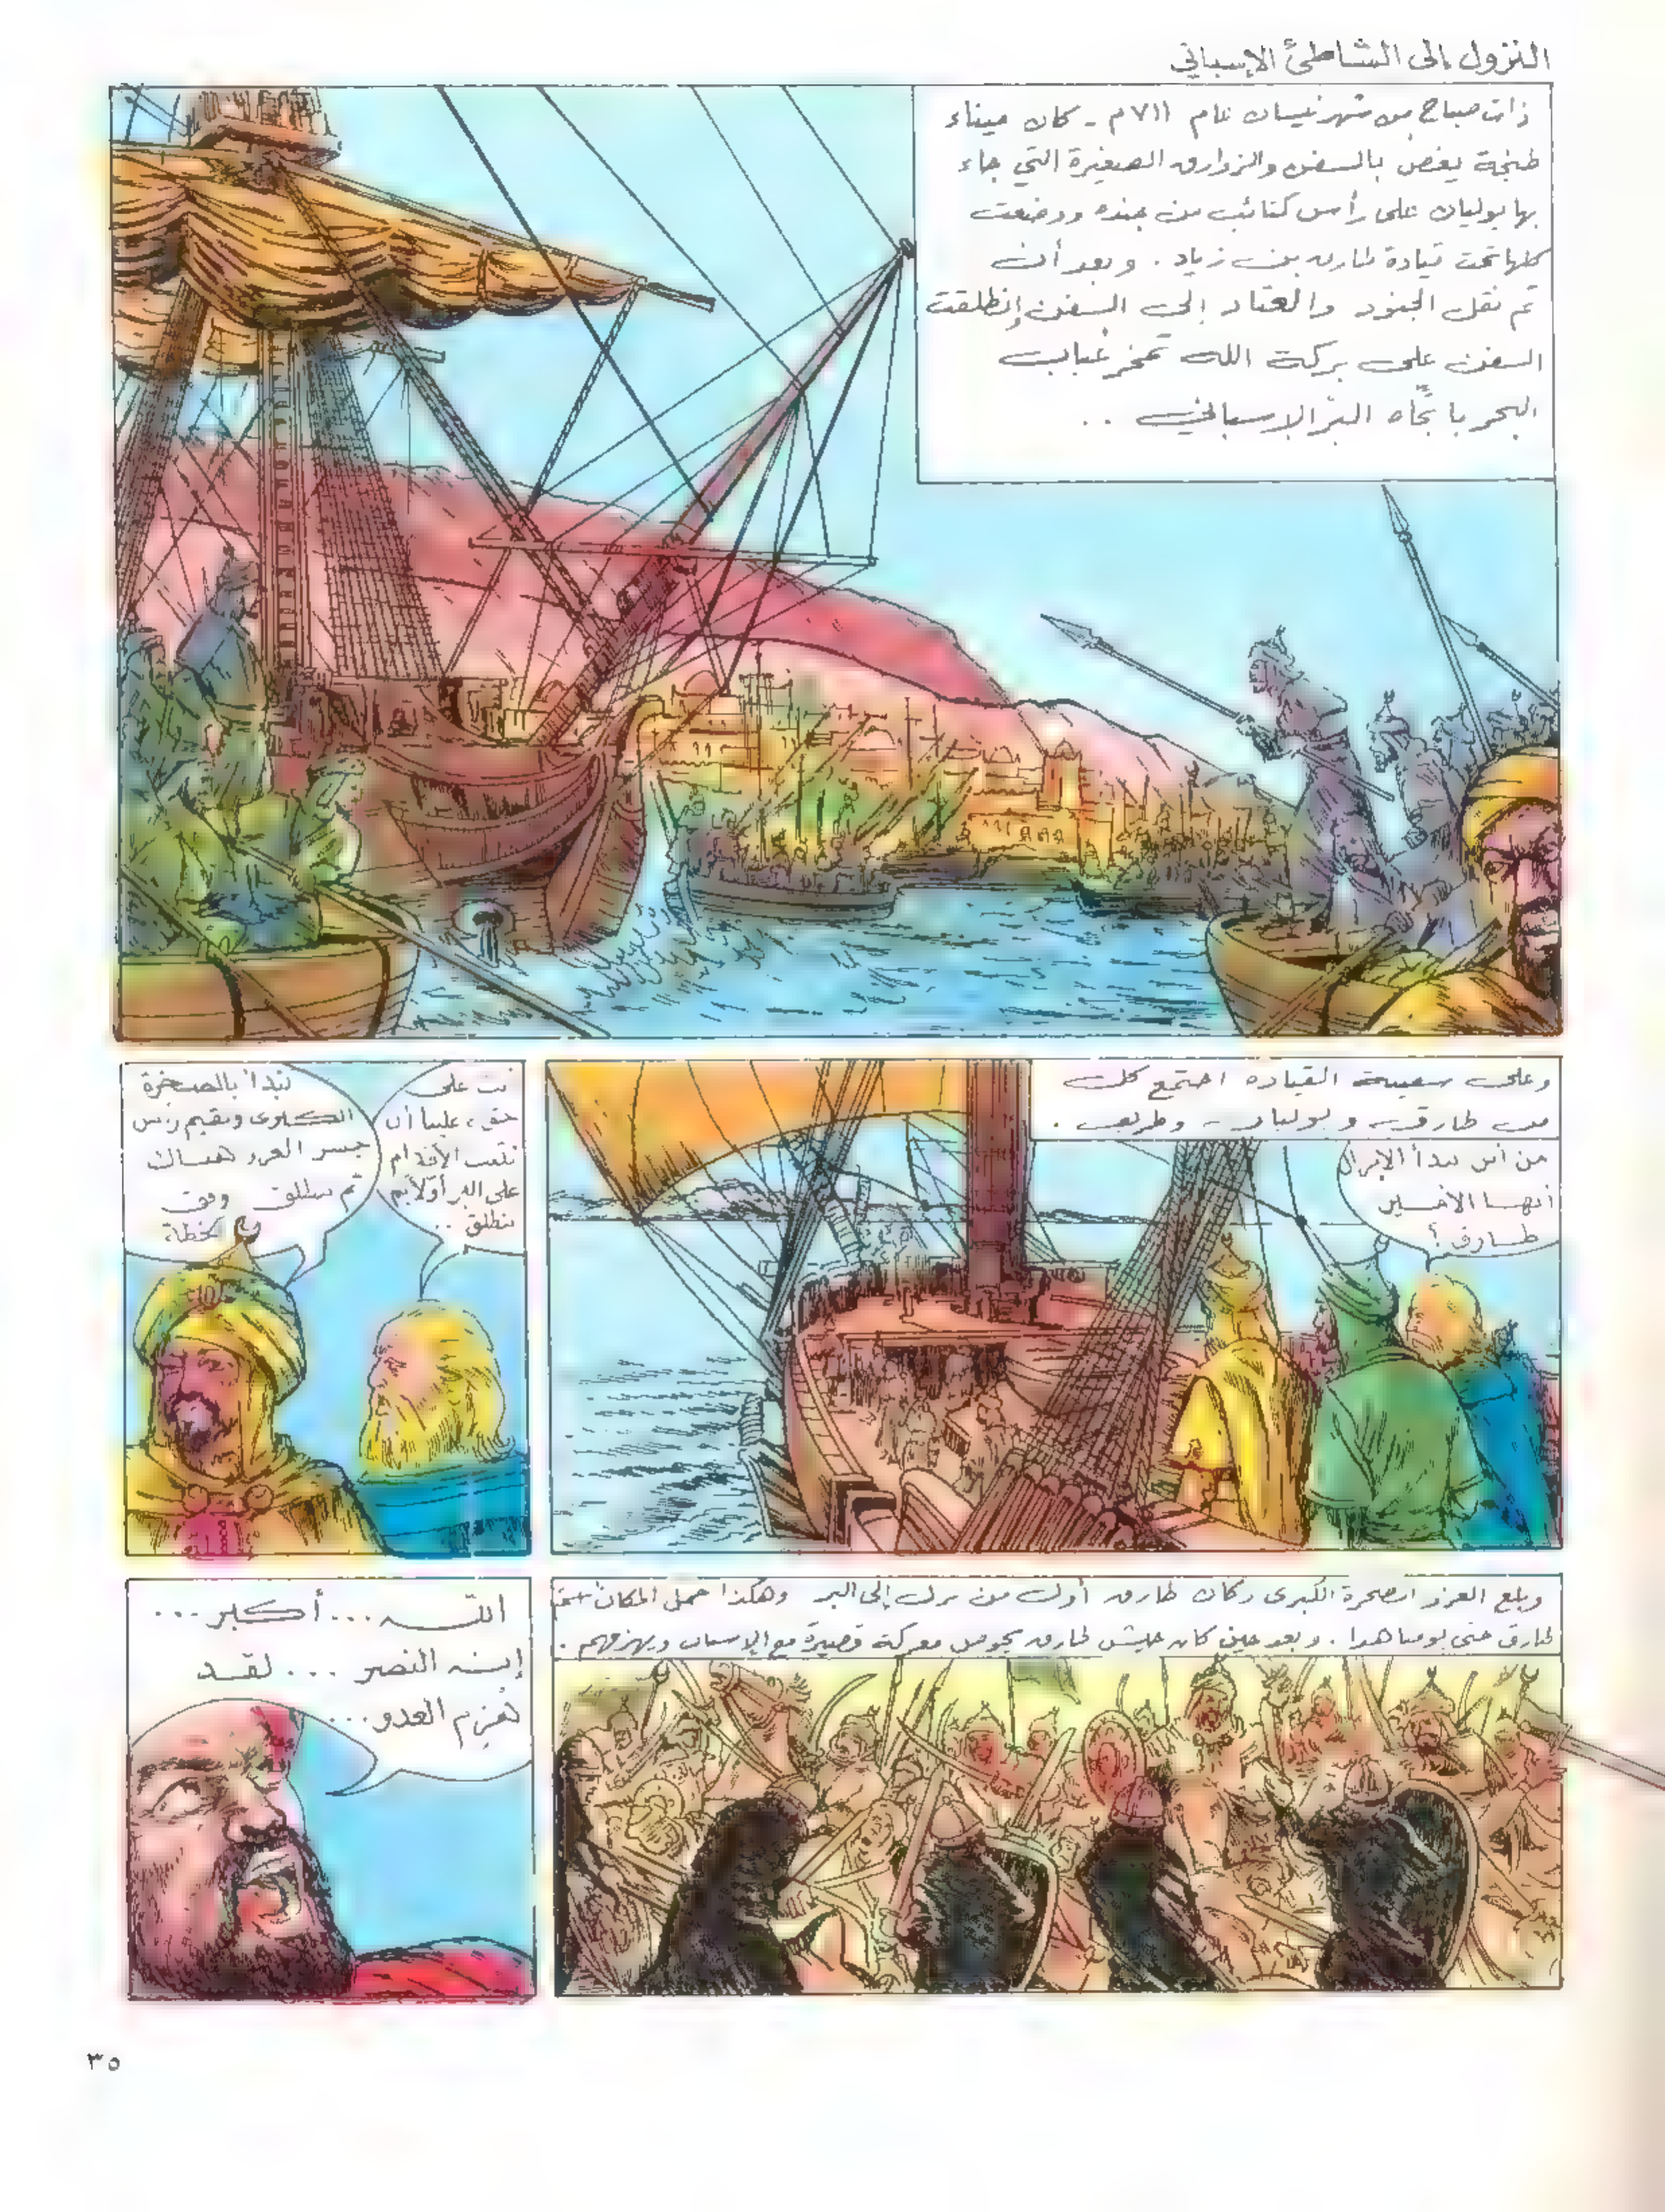 النزول إلى الشاطئ الإسباني
ذات صباح من شهر نيسان عام ٧١١م - كان ميناء
طنجة يغص بالسفن والزوارق الصغيرة التي جاء
بها يوليان على رأس كتائب من جنده ووضعت
كلها تحت قيادة طارق بن زياد . وبعد أن
تم نقل الجنود والعتاد إلى السفن إنطلقت
السفن على بركة الله تمخر عباب
البحر باتجاه البرّ الإسباني ..
وعلى سفينة القيادة اجتمع كل
من طارق و يوليان - وطريف .
من أين نبدأ الإنزال
أيها الأمير
طارق ؟
أنت على
حق ، علينا أن
نثبت الأقدام
على البر أولاً ثم
ننطلق ..
نبدأ بالصخرة
الكبرى ونقيم رأس
جسر العزو هناك
ثم ننطلق وفق
الخطة
وبلغ الغزو الصخرة الكبرى وكان طارق أول من نزل إلى البر وهكذا حمل المكان اسم
طارق حتى يومنا هذا . وبعد حين كان جيش طارق يخوض معركة قصيرة مع الإسبان ويهزمهم .
الله ... أكبر ...
إنه النصر ... لقد
هُزم العدو ...
٣٥